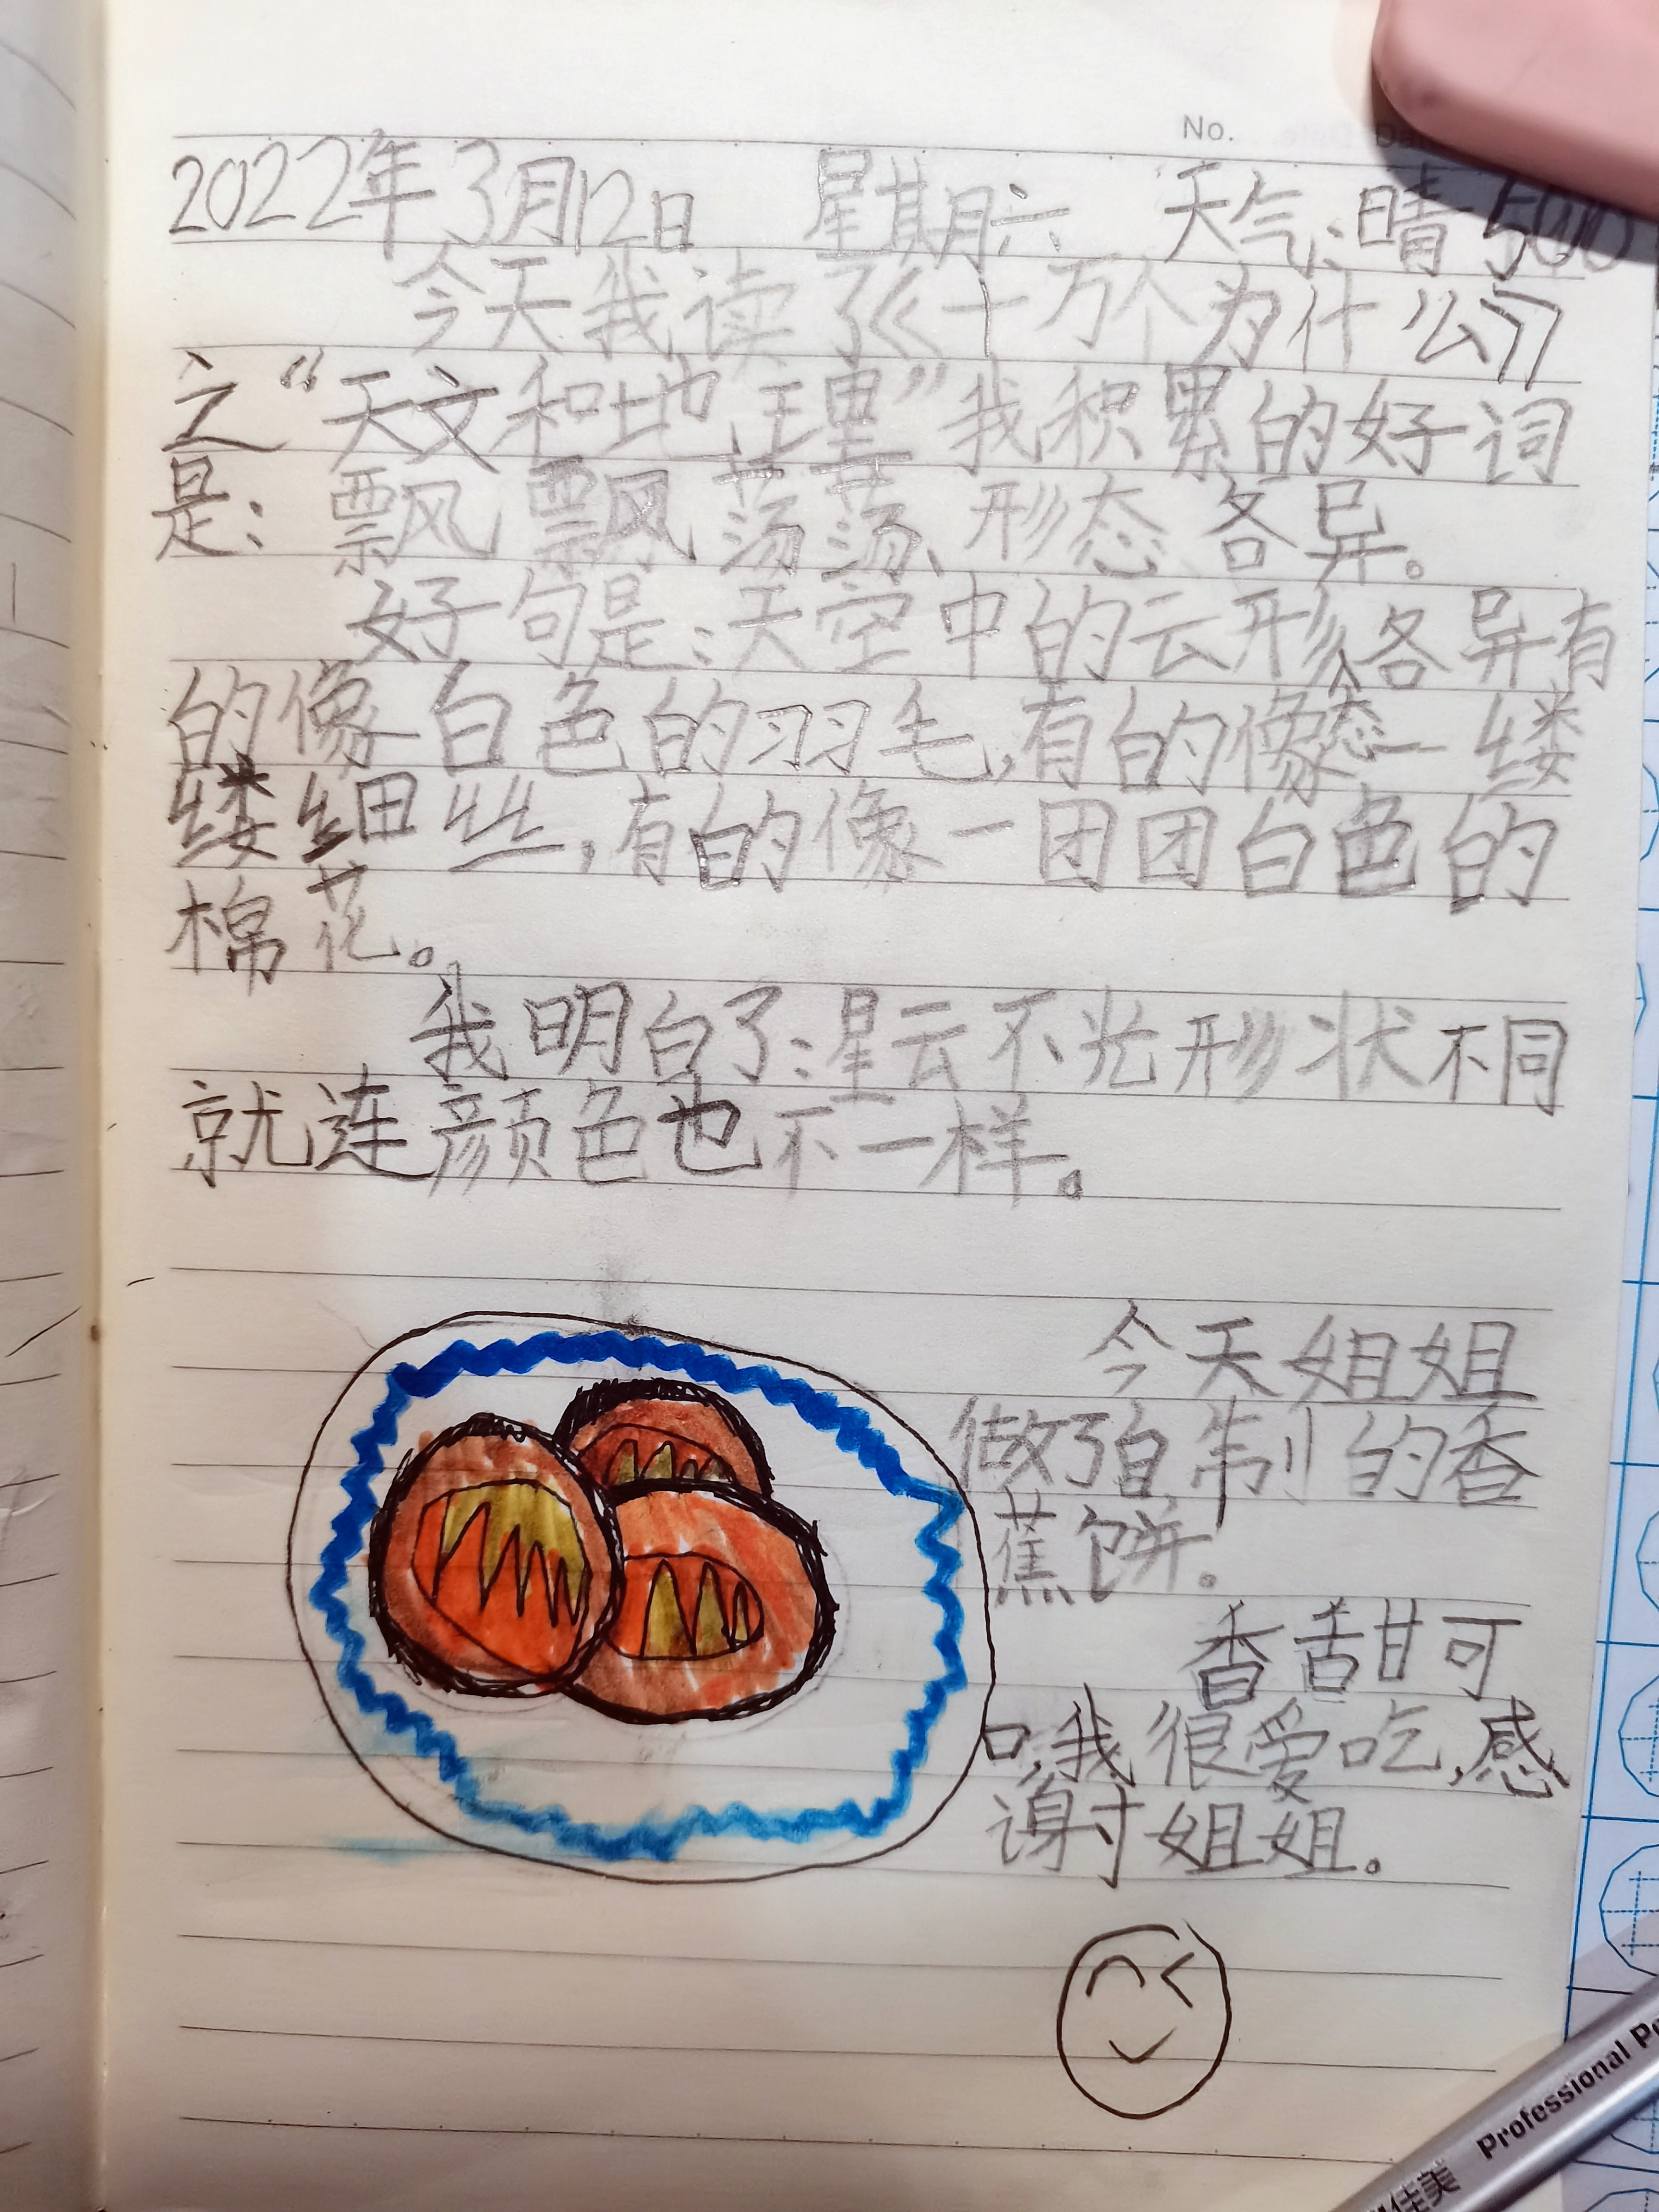 No.
2022年3月12日 星期六 天气:晴 500
今天我读了《十万个为什么》
之“天文和地理”我积累的好词
是:飘飘荡荡、形态各异。
好句是:天空中的云形态各异有
的像白色的羽毛,有的像一缕
缕细丝,有的像一团团白色的
棉花。
我明白了:星云不光形状不同
就连颜色也不一样。
今天姐姐
做了自制的香
蕉饼。
香甜可
口,我很爱吃,感
谢姐姐。
Professional
佳美